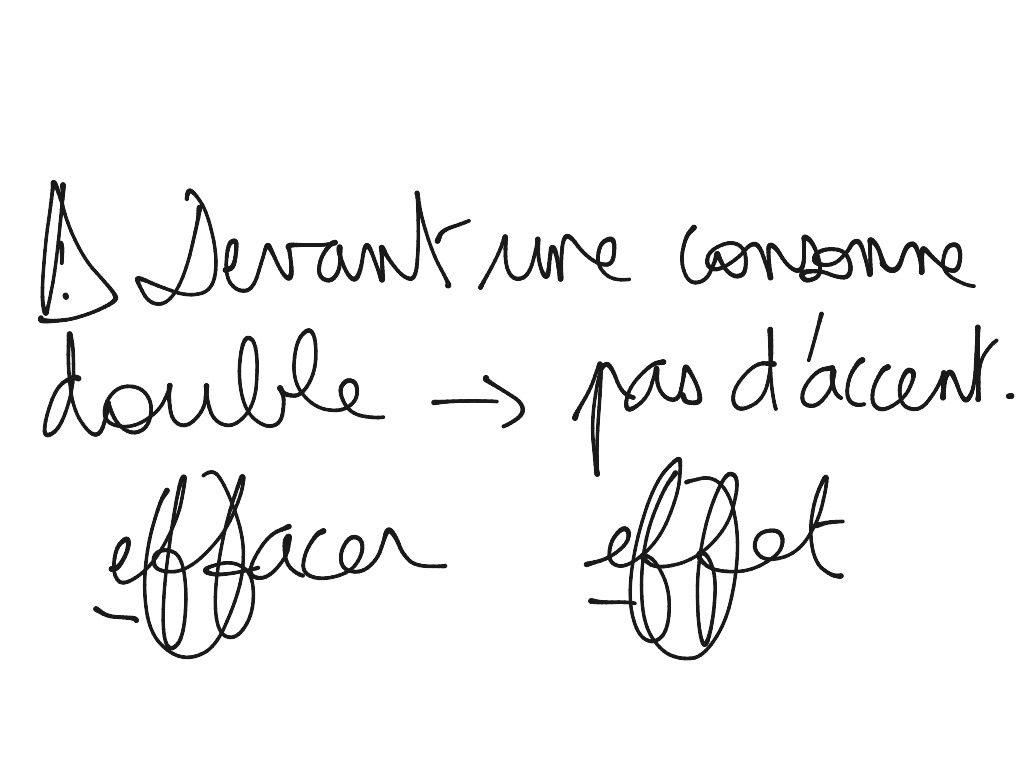 ⚠ Devant une consonne
double → pas d'accent.
effacer effet